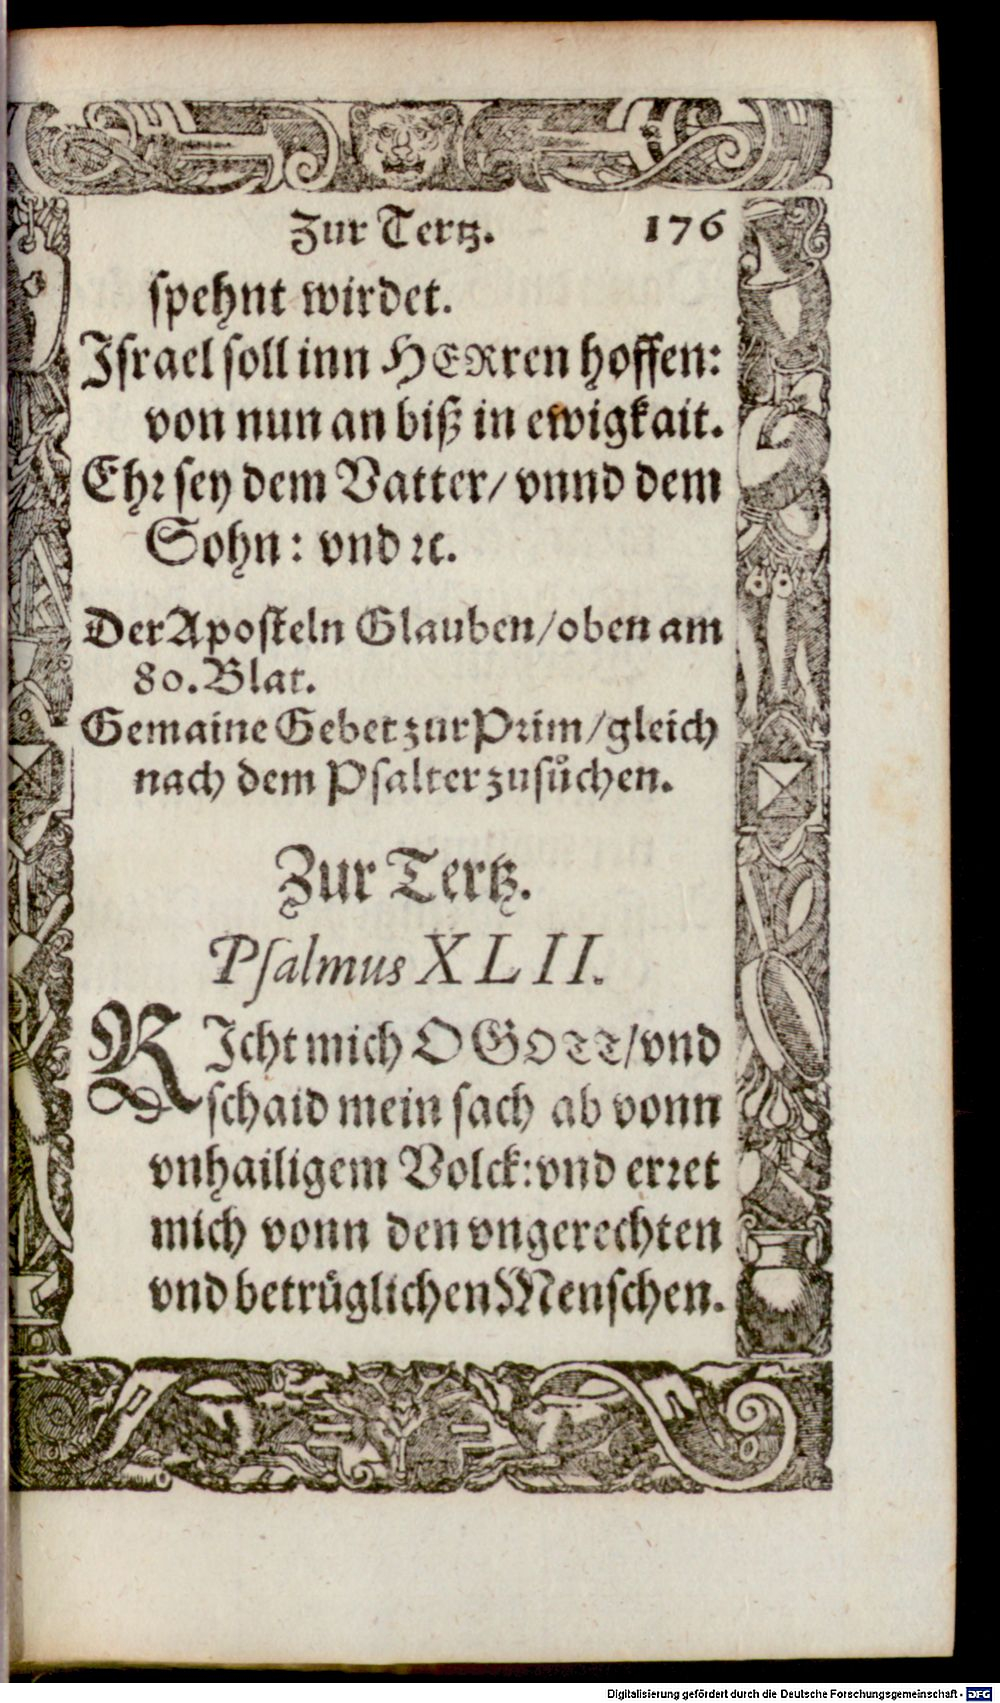 Zur Tertz. 176
spehnt wirdet.
Israel soll inn HERren hoffen:
von nun an biß in ewigkait.
Ehr sey dem Vatter/ vnnd dem
Sohn: vnd ꝛc.
Der Aposteln Glauben/ oben am
80. Blat.
Gemaine Gebet zur Prim/ gleich
nach dem Psalter zusůchen.
Zur Tertz.
Psalmus XLII.
RIcht mich O GOTT/ vnd
schaid mein sach ab vonn
vnhailigem Volck: vnd erret
mich vonn den vngerechten
vnd betrůglichen Menschen.
Digitalisierung gefördert durch die Deutsche Forschungsgemeinschaft - DFG